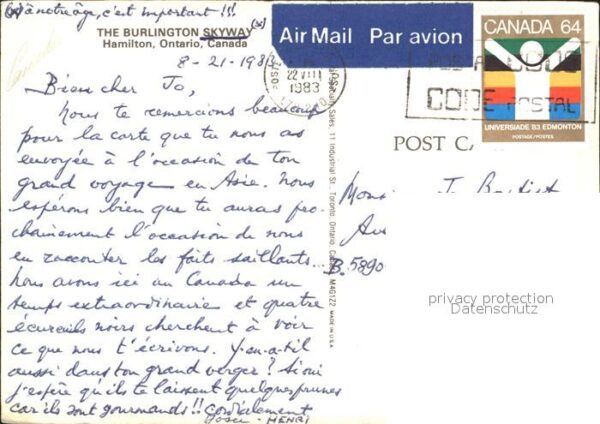 (x) à notre âge, c'est important !!!
THE BURLINGTON SKYWAY (x)
Hamilton, Ontario, Canada
8-21-1983
Bien cher Jo,
Nous te remercions beaucoup
pour la carte que tu nous as
envoyée à l'occasion de ton
grand voyage en Asie. Nous
espérons bien que tu auras pro-
chainement l'occasion de nous
en raconter les faits saillants...
Nous avons ici au Canada un
temps extraordinaire et quatre
écureuils noirs cherchent à voir
ce que nous t'écrivons. Y-en-a-til
aussi dans ton grand verger? Si oui
j'espère qu'ils te laissent quelques prunes
car ils sont gourmands!! Cordialement
HENRI
Air Mail Par avion
CANADA 64
22 VIII
1983
CODE POSTAL
UNIVERSIADE 83 EDMONTON
POSTAGE/POSTES
POST CA
Sales, 11 Industrial St., Toronto, Ontario, Canada M4G1Z2 MADE IN U.S.A.
J. Baptist
B.5890
privacy protection
Datenschutz